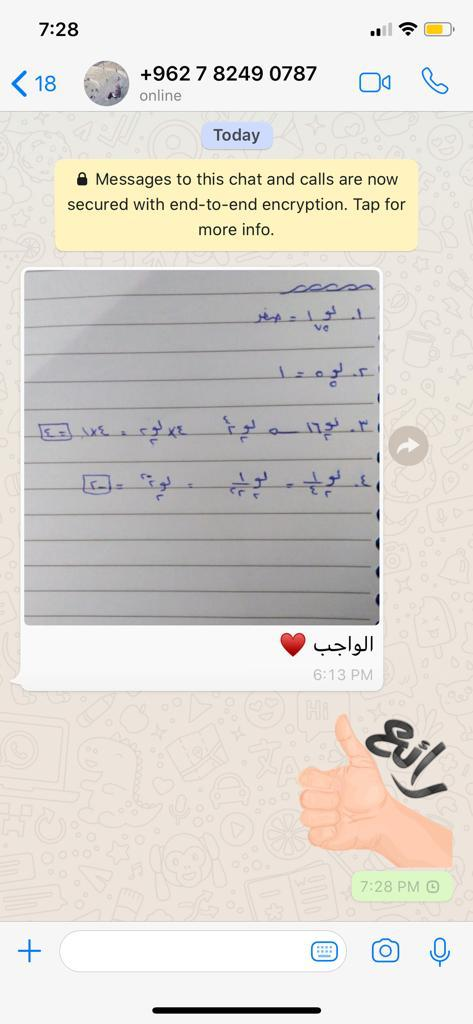 7:28
18
+962 7 8249 0787
online
Today
Messages to this chat and calls are now
secured with end-to-end encryption. Tap for
more info.
١. لو ١ = صفر
٧٥
٢. لو ٥ = ١
٥
٣. لو ١٦ ← لو ٢٤ ٤× لو ٢ = ٤×١ = ٤
٢ ٢ ٢
٤. لو ١/٤ = لو ١/٢٢ = لو ٢-٢ = -٢
٢ ٢ ٢
الواجب ♥
6:13 PM
رائع
7:28 PM